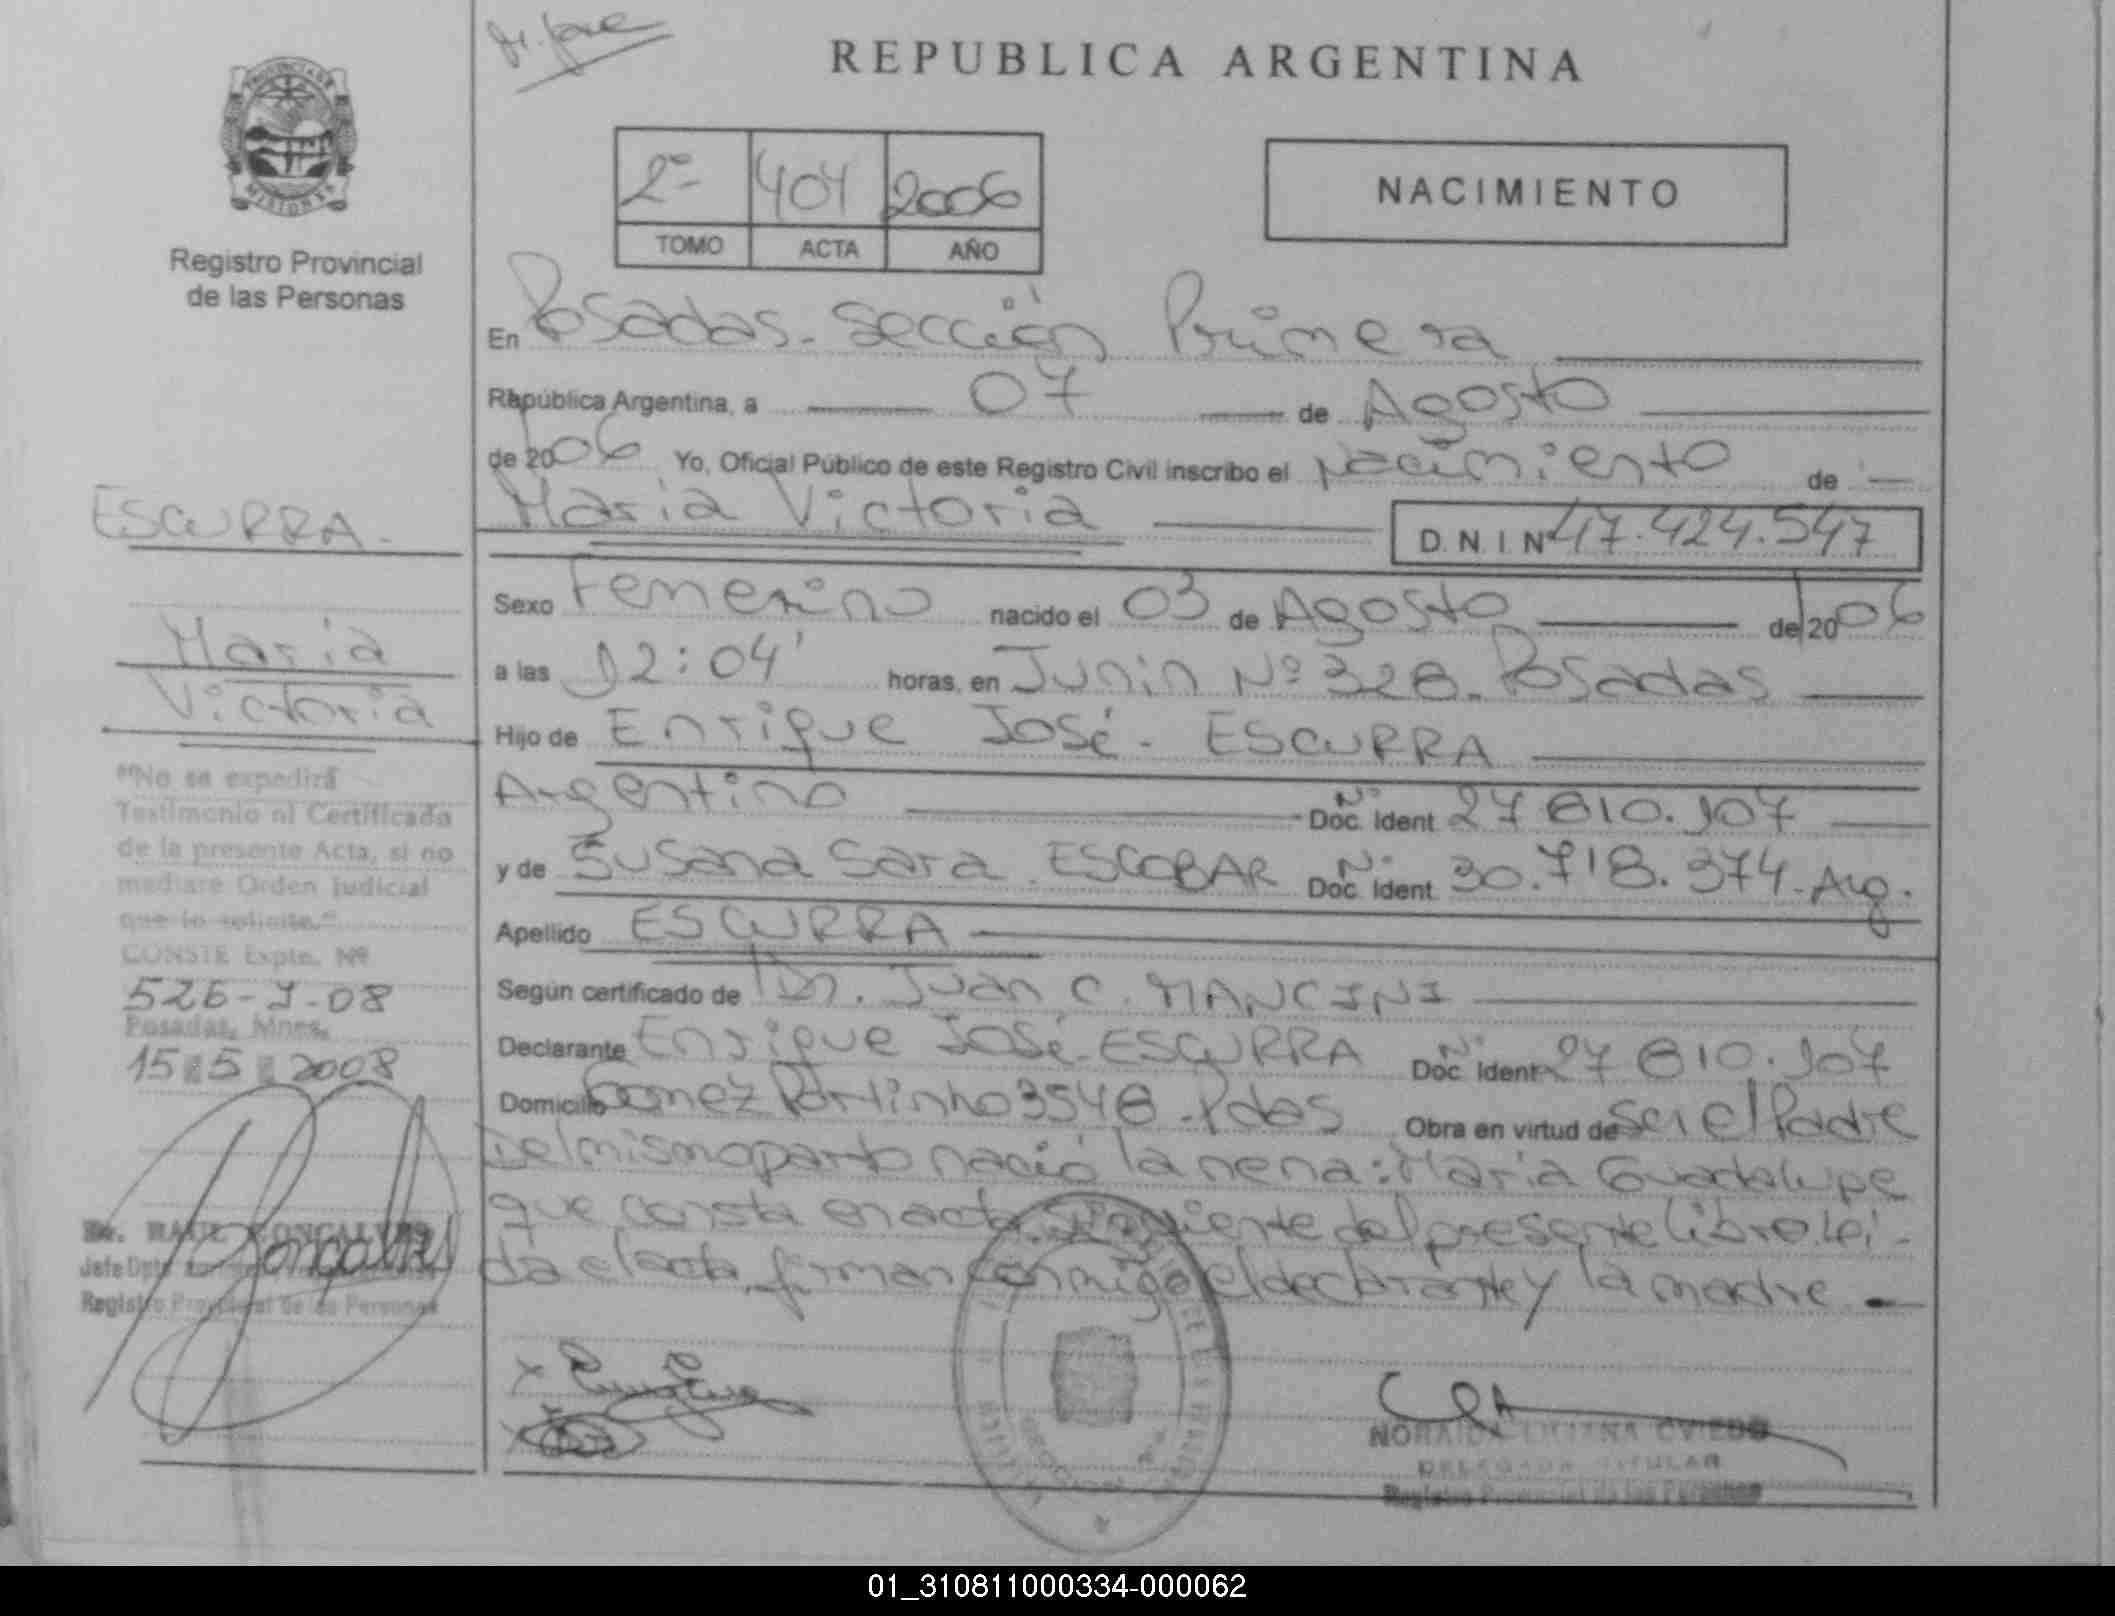 REPUBLICA ARGENTINA
PROVINCIA DE
MISIONES
Registro Provincial
de las Personas
2º 404 2006
TOMO ACTA AÑO
NACIMIENTO
En Posadas - Sección Primera
República Argentina, a 07 de Agosto
de 2006 Yo, Oficial Público de este Registro Civil inscribo el nacimiento de
María Victoria D.N.I Nº 47.424.547
Sexo Femenino nacido el 03 de Agosto de 2006
a las 12:04' horas, en Junín Nº 328 - Posadas
Hijo de Enrique José - ESCURRA
Argentino Nº Doc. Ident. 27.810.107
y de Susana Sara ESCOBAR Nº Doc. Ident. 30.718.374 - Arg.
Apellido ESCURRA
Según certificado de Dr. Juan C. MANCINI
Declarante Enrique José - ESCURRA Nº Doc. Ident. 27 810.107
Domicilio Gomez Portinho 3548 - Pdas Obra en virtud de ser el Padre
Del mismo parto nació la nena: María Guadalupe
que consta en acta siguiente del presente libro. Leí-
da el acta, firman conmigo el declarante y la madre
NORAIDA LILIANA OVIEDO
DELEGADA TITULAR
Registro Provincial de las Personas
ESCURRA -
María
Victoria
"No se expedirá
Testimonio ni Certificado
de la presente Acta, si no
mediare Orden Judicial
que lo solicite."
CONSTE Expte. Nº
526-J-08
Posadas, Mnes.
15 5 2008
Dr. RAUL GONCALVES
Jefe Dpto
Registro Provincial de las Personas
01_310811000334-000062